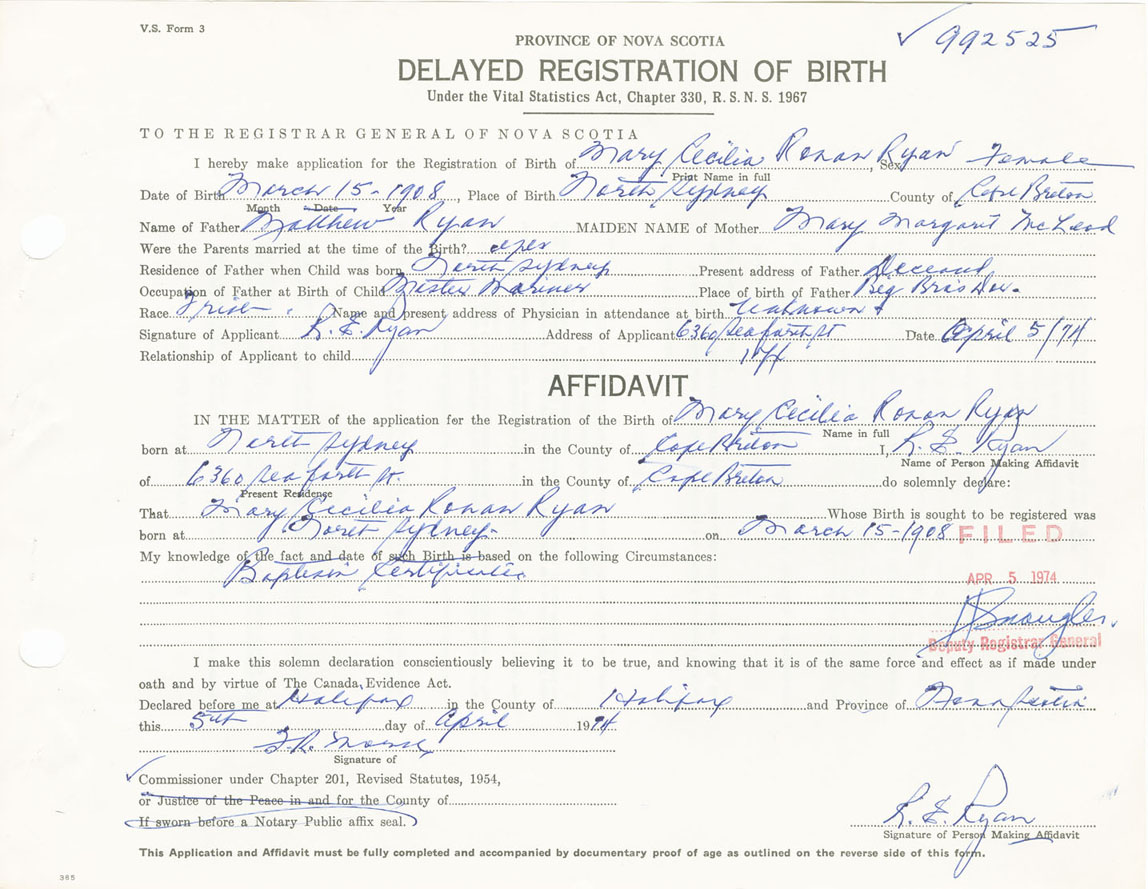 V.S. Form 3
✓ 992525
PROVINCE OF NOVA SCOTIA
DELAYED REGISTRATION OF BIRTH
Under the Vital Statistics Act, Chapter 330, R. S. N. S. 1967
TO THE REGISTRAR GENERAL OF NOVA SCOTIA
I hereby make application for the Registration of Birth of Mary Cecilia Ronan Ryan Sex Female
Print Name in full
Date of Birth March 15-1908, Place of Birth North Sydney County of Cape Breton
Month Date Year
Name of Father Matthew Ryan MAIDEN NAME of Mother Mary Margaret McLeod
Were the Parents married at the time of the Birth? yes
Residence of Father when Child was born North Sydney Present address of Father Deceased
Occupation of Father at Birth of Child Master Mariner Place of birth of Father Big Bras Dor.
Race Irish. Name and present address of Physician in attendance at birth Unknown
Signature of Applicant R. E. Ryan Address of Applicant 6360 Seaforth St Date April 5/74
Relationship of Applicant to child
AFFIDAVIT
IN THE MATTER of the application for the Registration of the Birth of Mary Cecilia Ronan Ryan
Name in full
born at North Sydney in the County of Cape Breton I, R. E. Ryan
Name of Person Making Affidavit
of 6360 Seaforth St. in the County of Cape Breton do solemnly declare:
Present Residence
That Mary Cecilia Ronan Ryan Whose Birth is sought to be registered was
born at North Sydney on March 15-1908
FILED
My knowledge of the fact and date of such Birth is based on the following Circumstances:
Baptism Certificate
APR 5 1974
Deputy Registrar General
I make this solemn declaration conscientiously believing it to be true, and knowing that it is of the same force and effect as if made under
oath and by virtue of The Canada Evidence Act.
Declared before me at Halifax in the County of Halifax and Province of Nova Scotia
this 5th day of April 1974
Signature of
✓ Commissioner under Chapter 201, Revised Statutes, 1954,
or Justice of the Peace in and for the County of
If sworn before a Notary Public affix seal.)
R. E. Ryan
Signature of Person Making Affidavit
This Application and Affidavit must be fully completed and accompanied by documentary proof of age as outlined on the reverse side of this form.
365